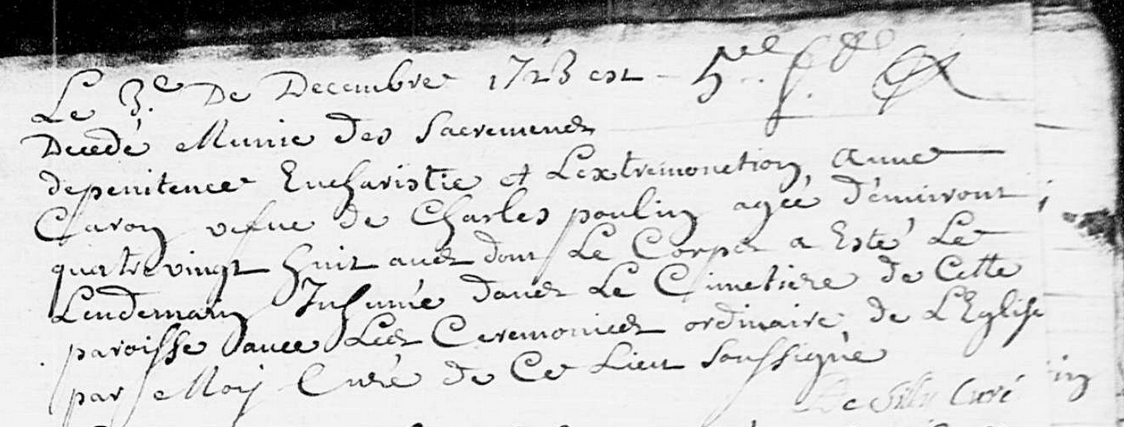 Le 3.e De Decembre 1723 est
Decedé Munie des Sacremens
depenitence Eucharistie et Lextremonction, anne
Caron vefue de Charles poulin agée d'enuiront
quatrevingt huit ans dont Le Corps a Esté Le
Lendemain Inhumée dans Le Cimetiere de Cette
paroisse auec Les Ceremonies ordinaire, de LEglise
par Moy Curé de Ce Lieu Soussigne
Curé